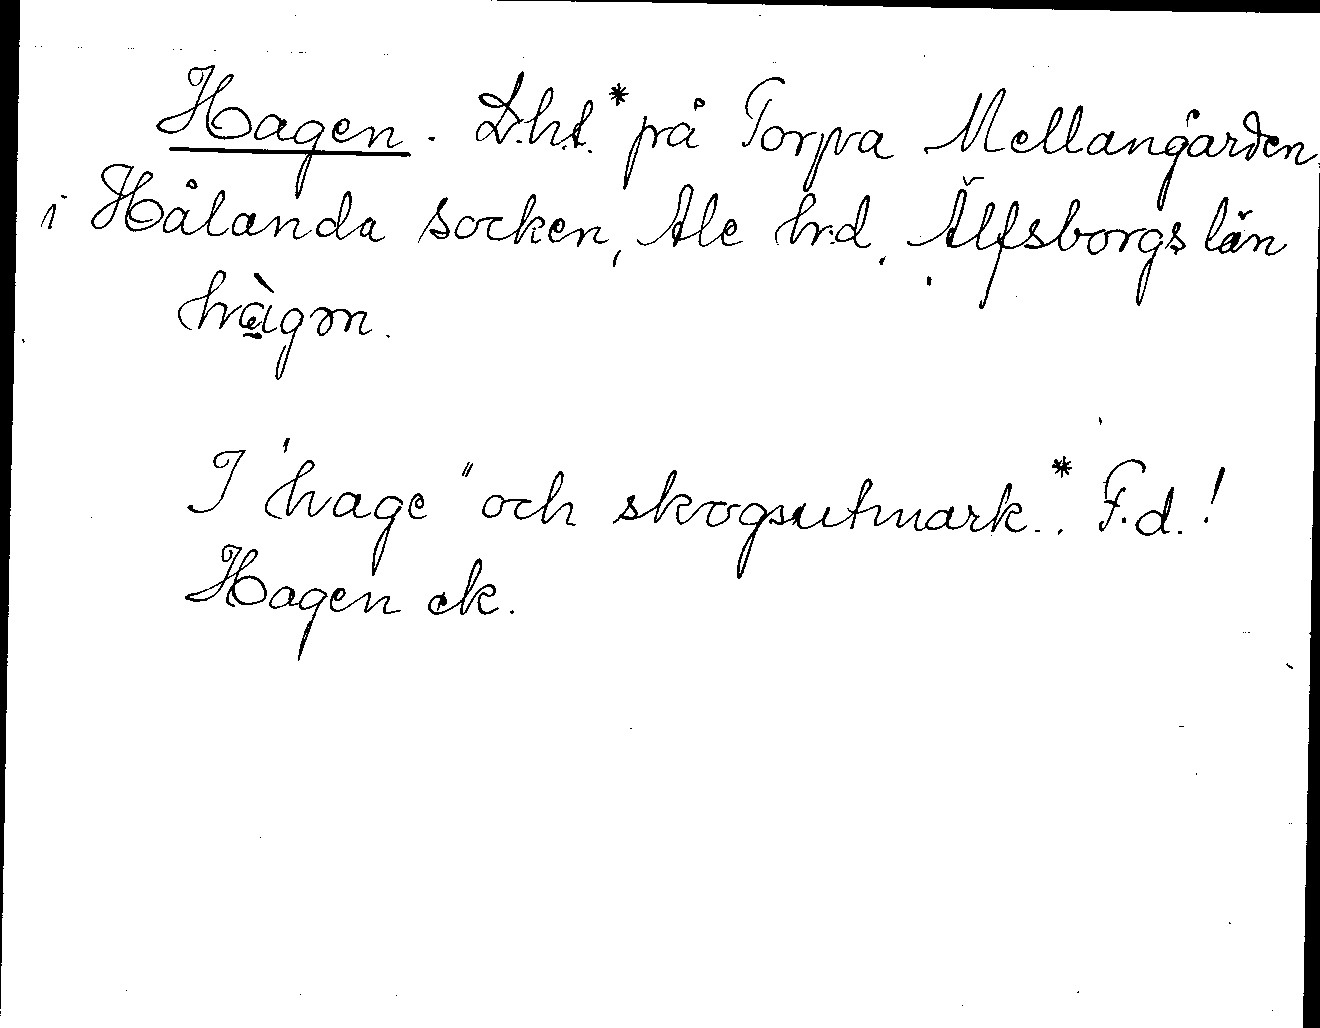 Hagen. L.h.t.* på Torpa Mellangården,
i Hålanda socken, Ale hrd. Älfsborgs län
hàgən.
I "hage" och skogsutmark.* F.d.!
Hagen ek.